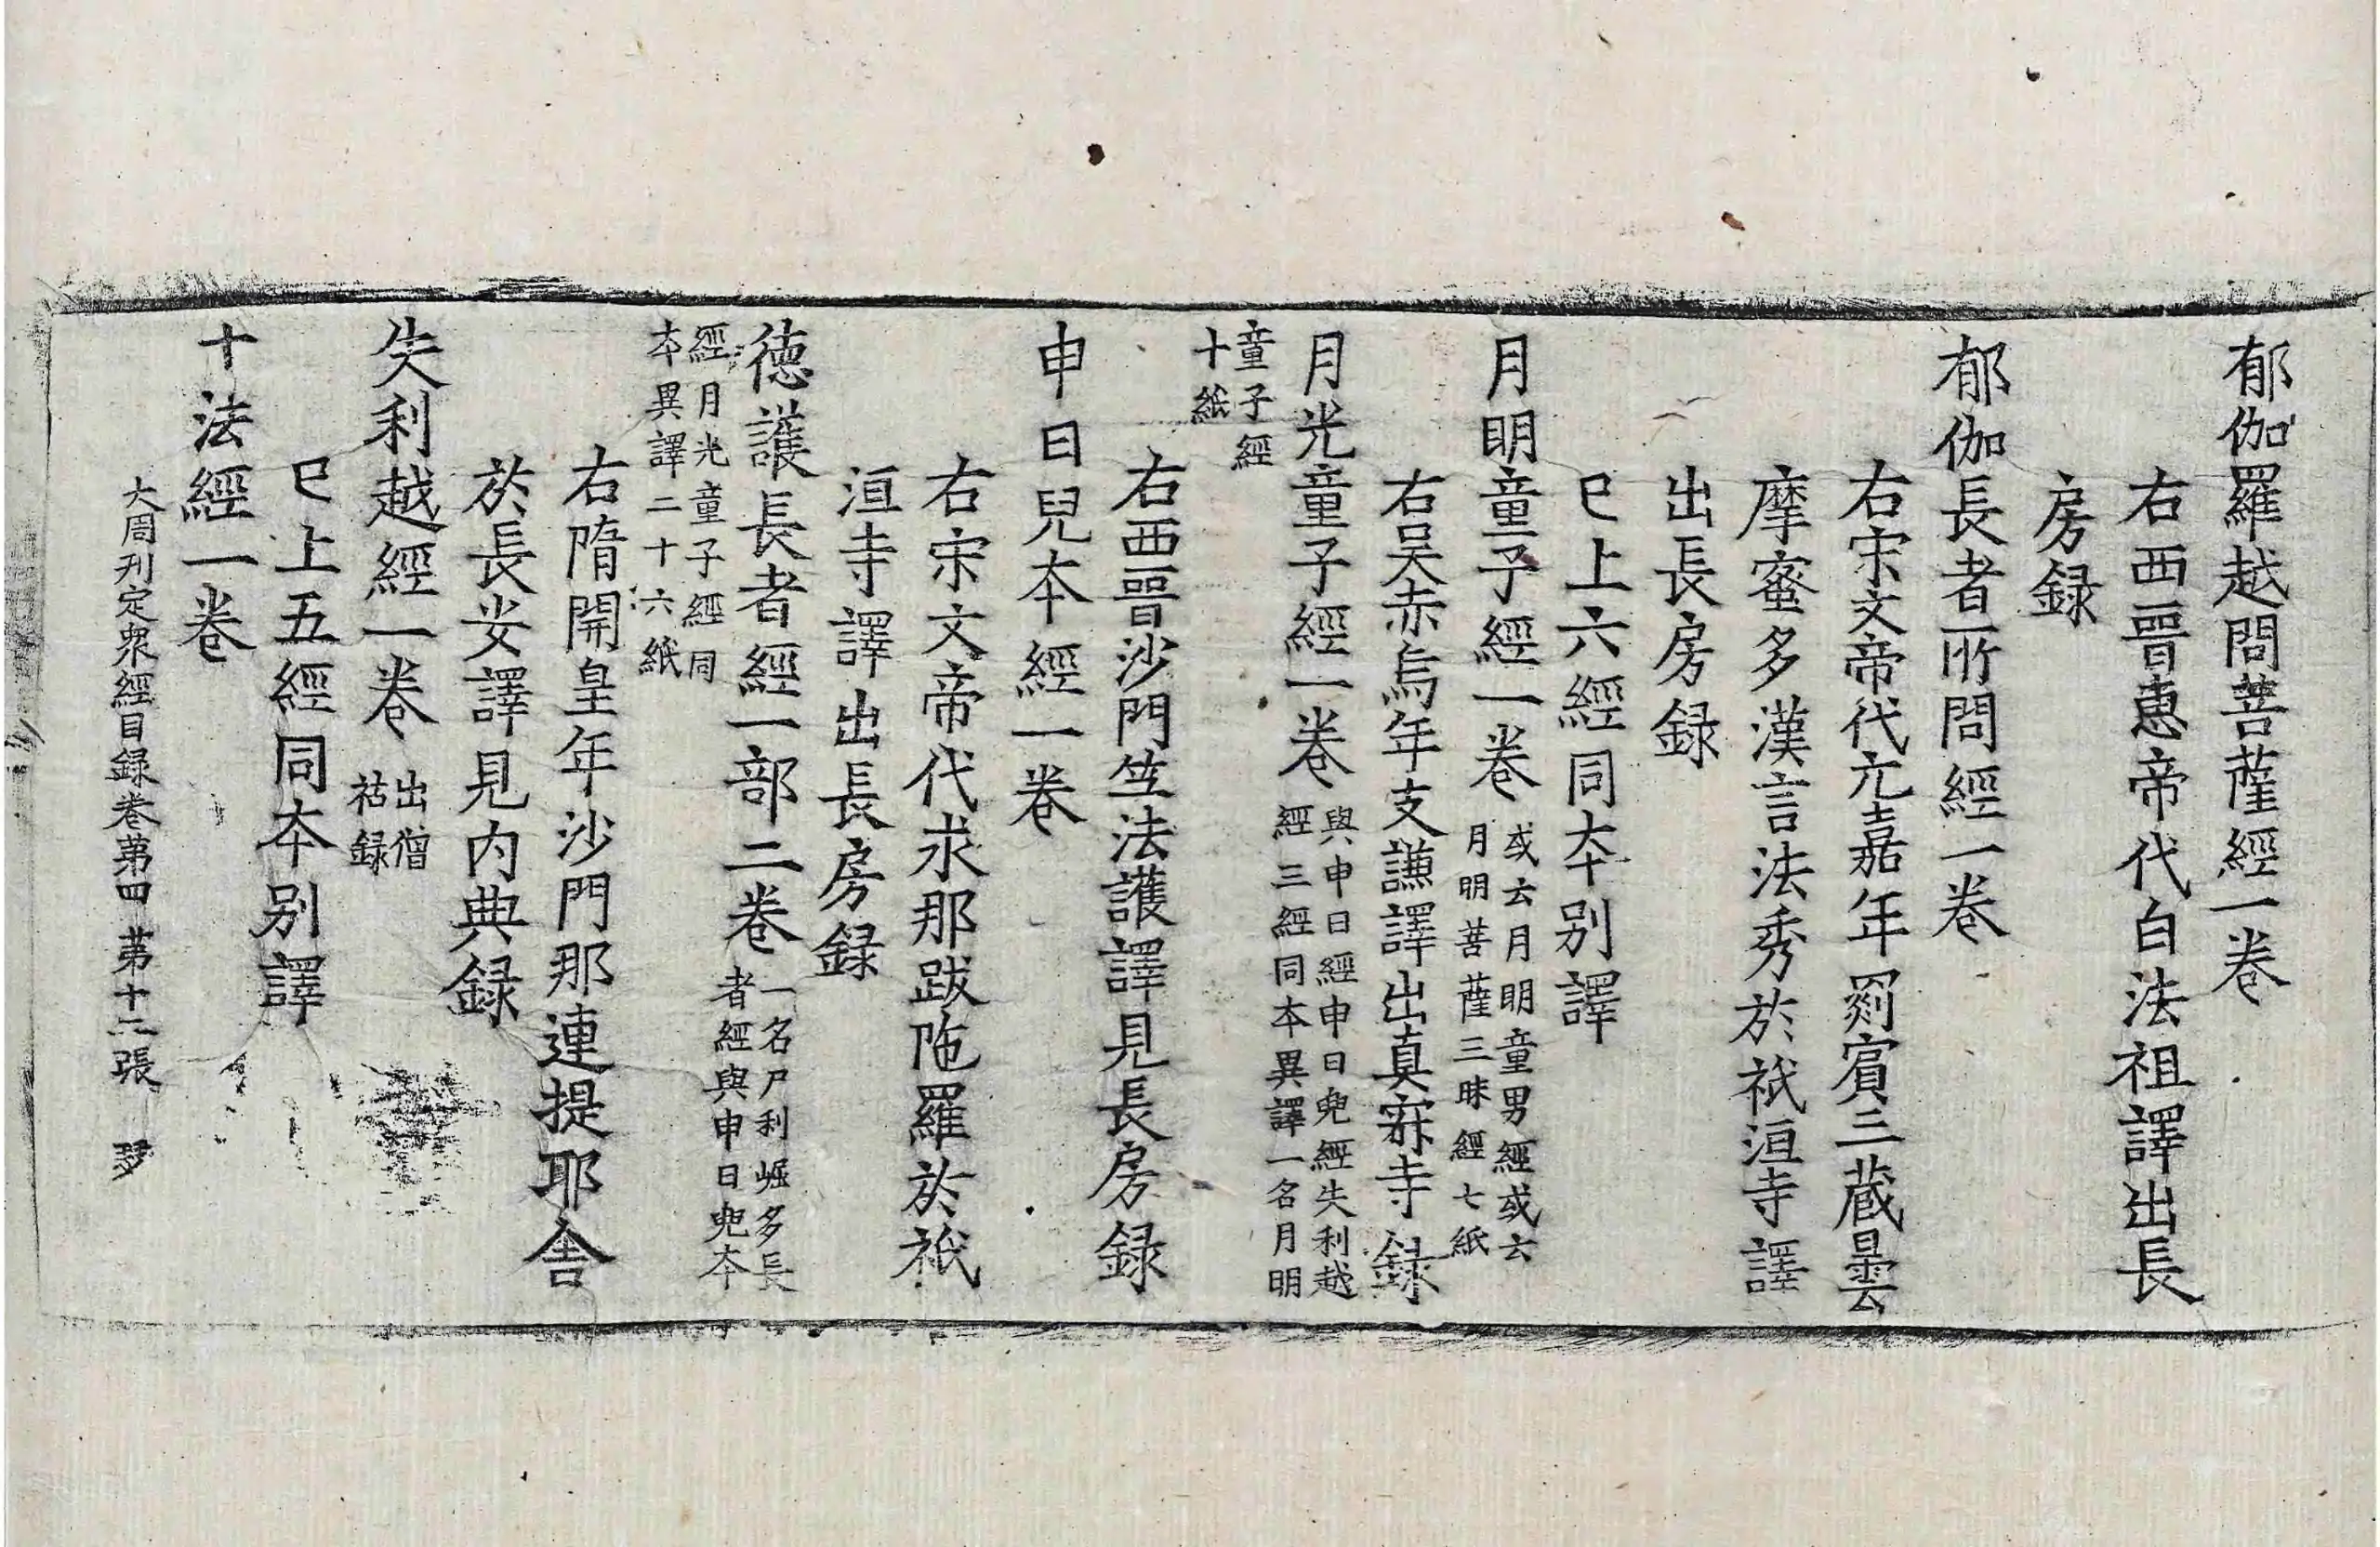 郁伽羅越問菩薩經一卷
右西晉惠帝代白法祖譯出長
房録
郁伽長者所問經一卷
右宋文帝代元嘉年罽賓三蔵曇
摩蜜多漢言法秀於祇洹寺譯
出長房録
已上六經同本别譯
月明童子經一卷
或云月明童男經或云
月明菩薩三昧經七紙
右吴赤烏年支謙譯出真寂寺録
月光童子經一卷
與申日經申日兜經失利越
經三經同本異譯一名月明
童子經
十紙
右西晉沙門竺法護譯見長房録
申日兒本經一卷
右宋文帝代求那跋陁羅於祇
洹寺譯出長房録
德護長者經一部二卷
一名尸利崛多長
者經與申日兜本
經月光童子經同
本異譯二十六紙
右隋開皇年沙門那連提耶舍
於長安譯見内典録
失利越經一卷
出僧
祐録
已上五經同本别譯
十法經一卷
大周刊定衆經目録卷第四 第十二張